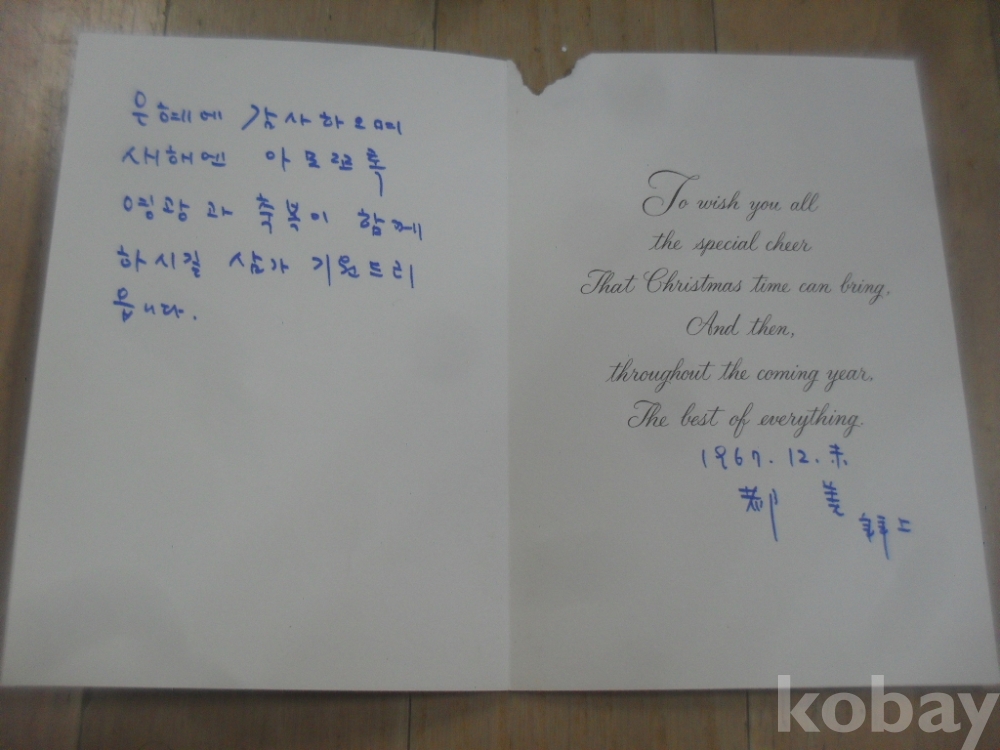 은혜에 감사하오며
새해엔 아모쪼록
영광과 축복이 함께
하시길 삼가 기원드리
옵니다.
To wish you all
the special cheer
That Christmas time can bring,
And then,
throughout the coming year,
The best of everything.
1967. 12.
美
拜上
kobay